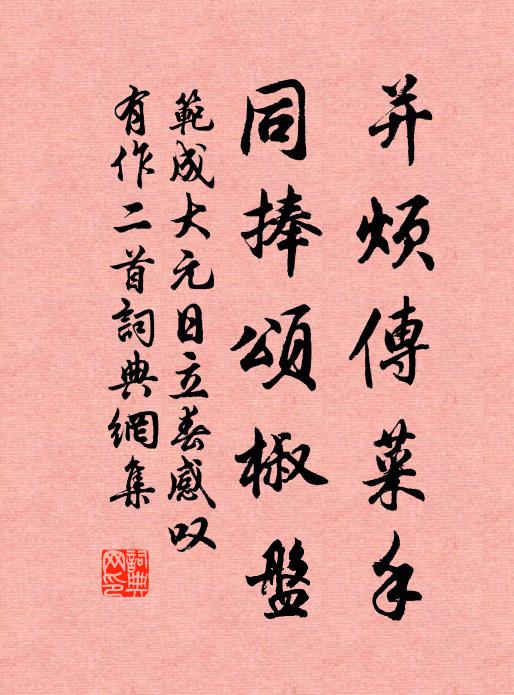 并煩傳菜手
同捧頌椒盤
範成大元日立春感叹
有作二首詞典網集
詞典
网印